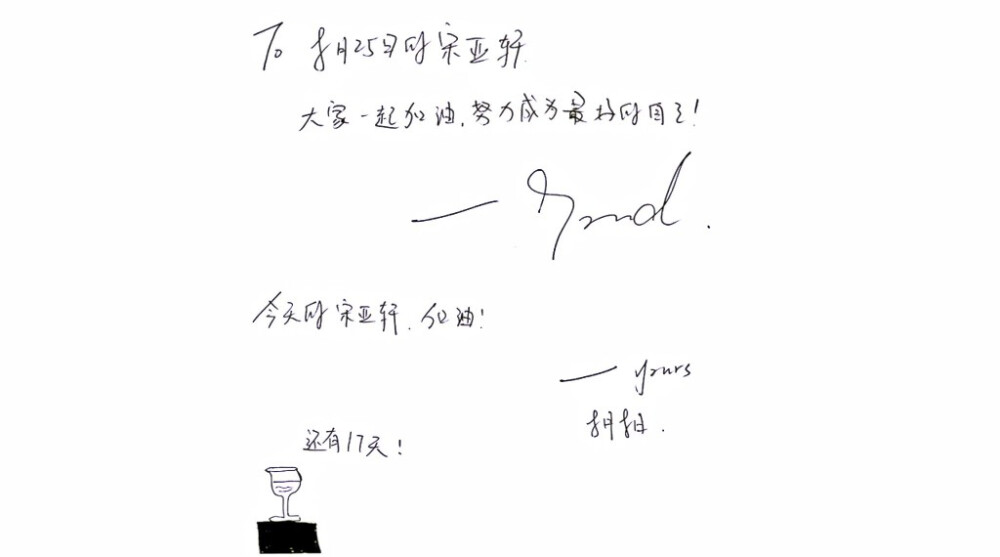 To 8月25日的宋亚轩
大家一起加油,努力成为最好的自己!
今天的宋亚轩,加油!
— yours
8月8日.
还有17天!